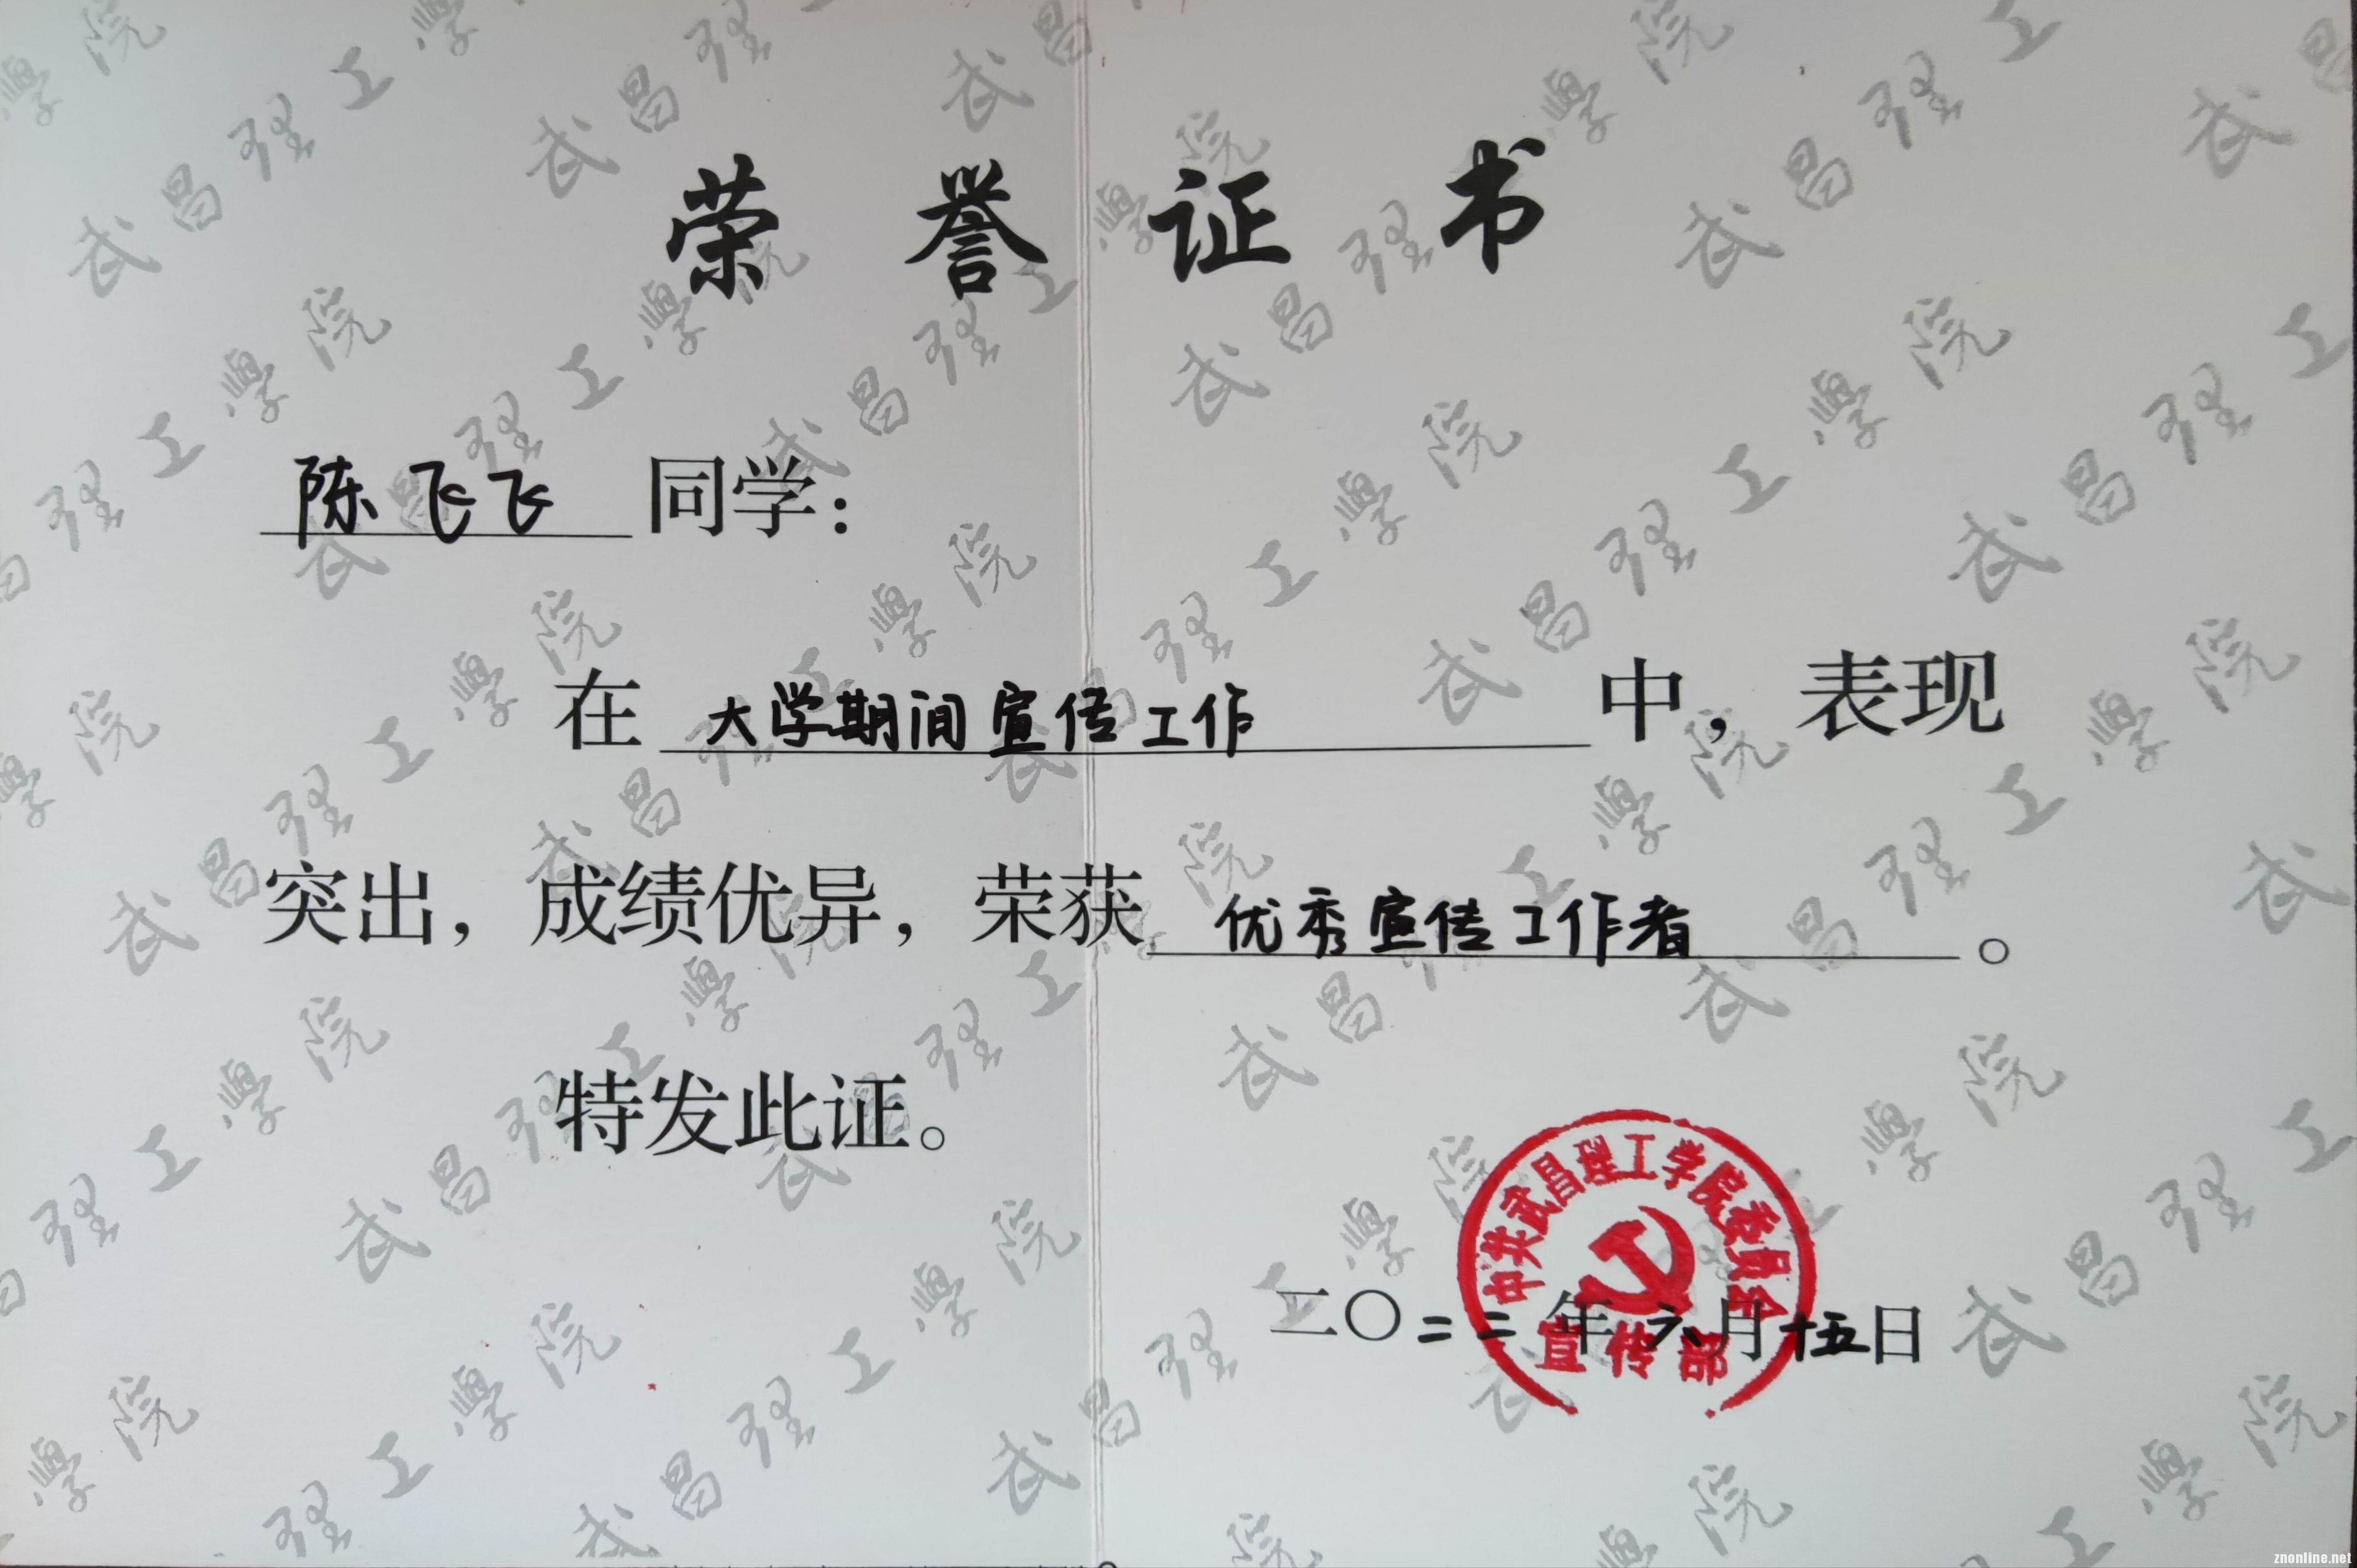 荣誉证书
陈飞飞 同学：
在 大学期间宣传工作 中，表现
突出，成绩优异，荣获 优秀宣传工作者 。
特发此证。
中共武昌理工学院委员会
宣传部
二〇二二年六月十五日
武昌理工学院
znonline.net